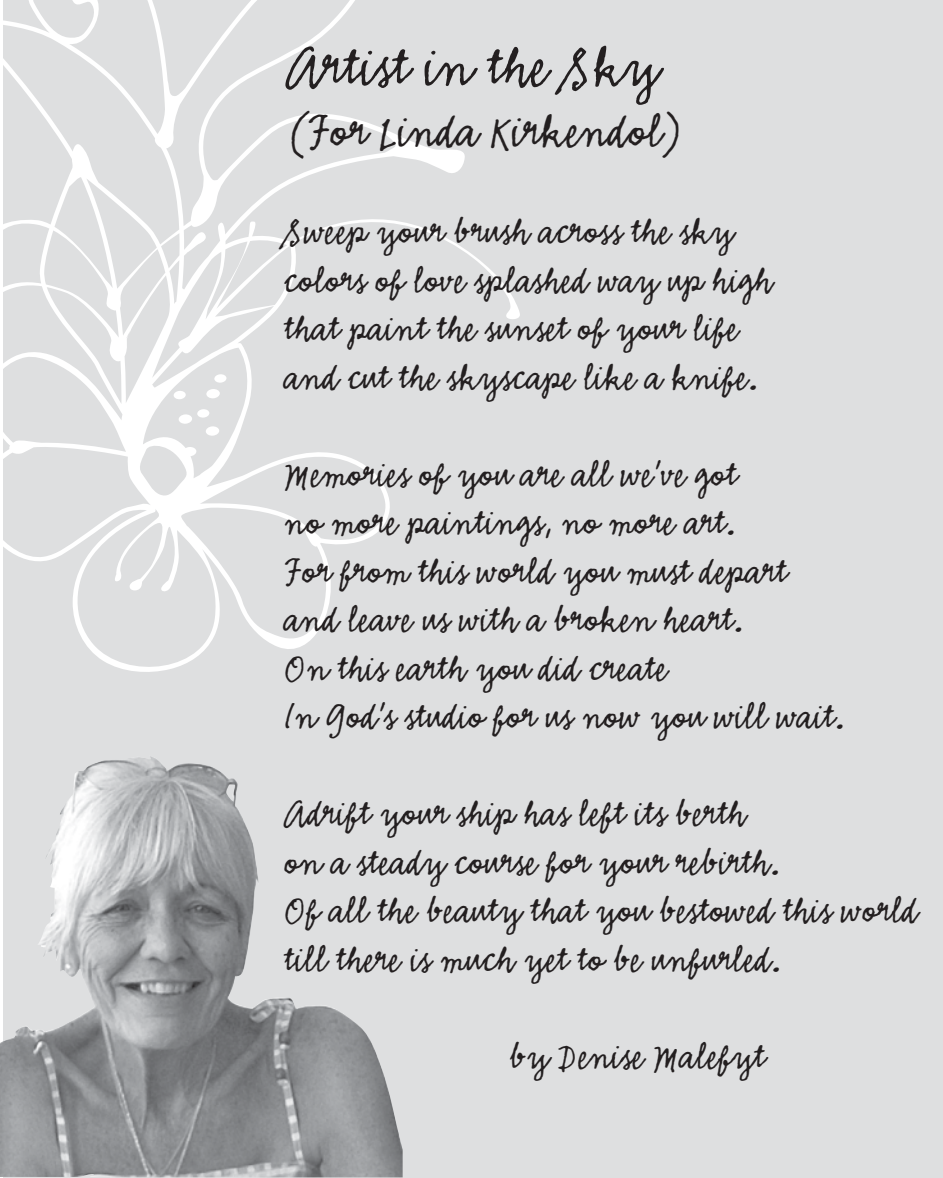 Artist in the Sky
(For Linda Kirkendol)
Sweep your brush across the sky
colors of love splashed way up high
that paint the sunset of your life
and cut the skyscape like a knife.
Memories of you are all we've got
no more paintings, no more art.
For from this world you must depart
and leave us with a broken heart.
On this earth you did create
In God's studio for us now you will wait.
Adrift your ship has left its berth
on a steady course for your rebirth.
Of all the beauty that you bestowed this world
till there is much yet to be unfurled.
by Denise Malefyt